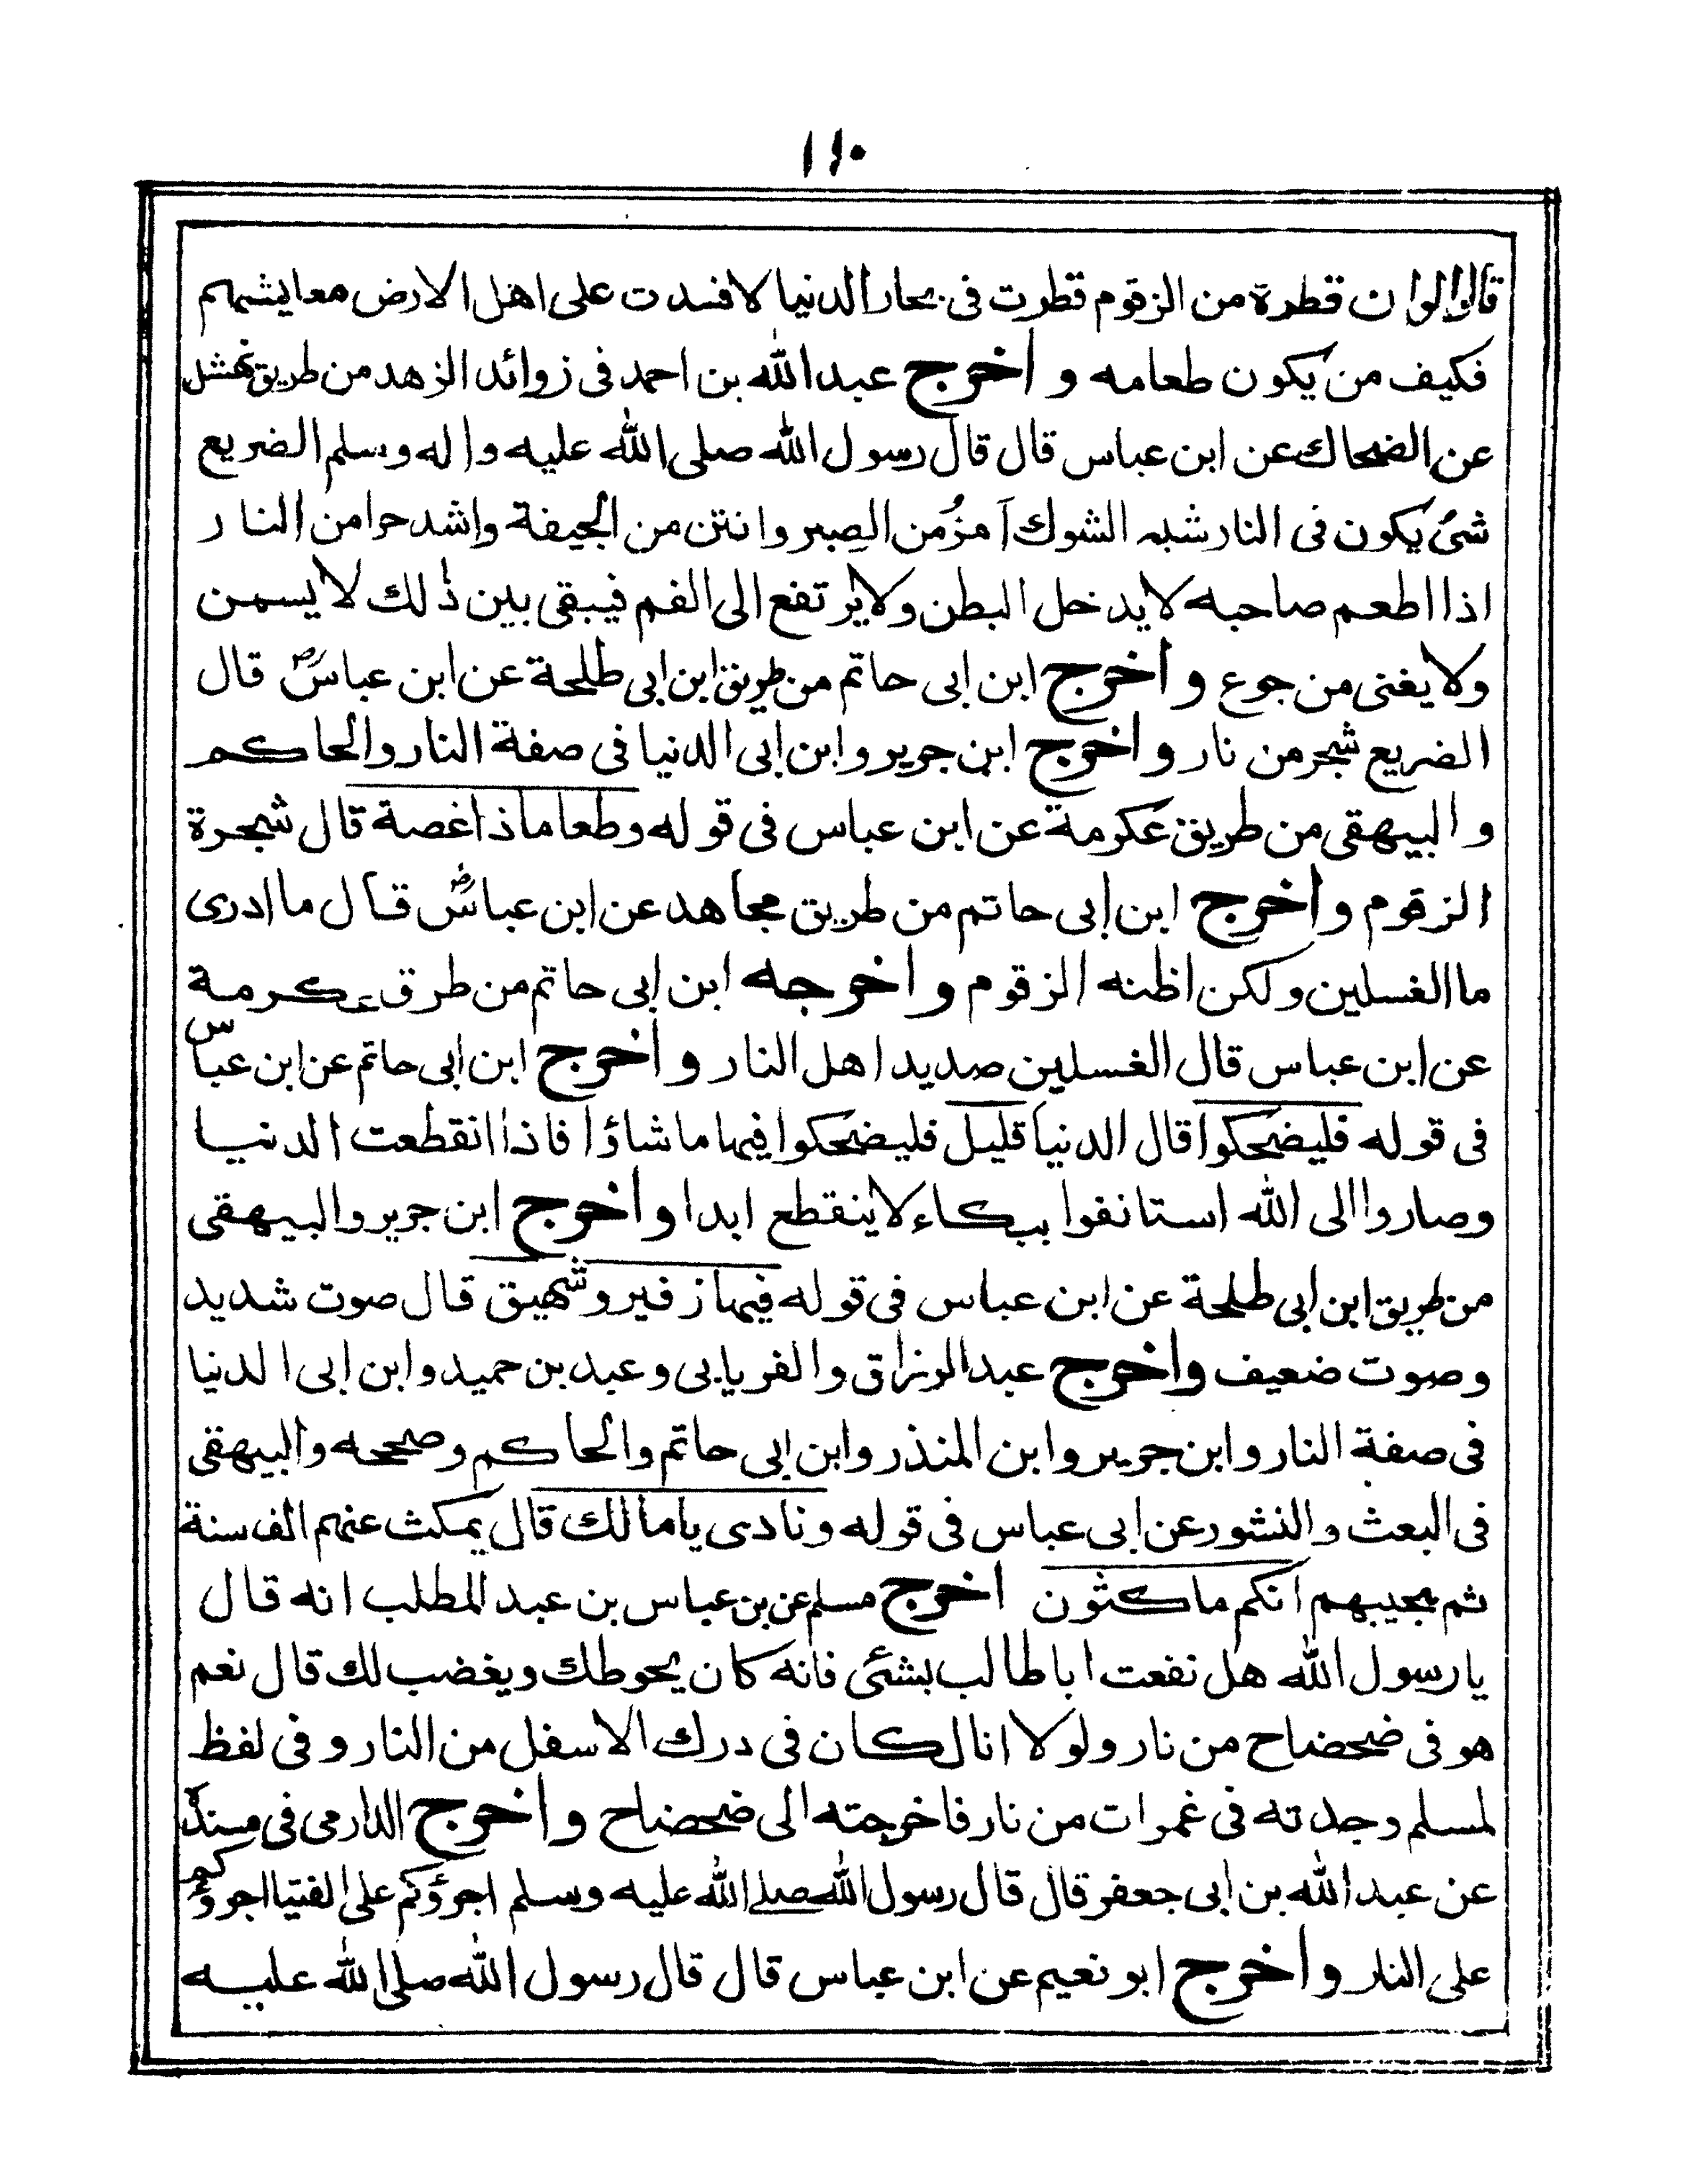 ١١٠
قالوا لوان قطرة من الزقوم قطرت فى بحار الدنيا لافسدت على اهل الارض معايشهم
فكيف من يكون طعامه واخرج عبد الله بن احمد فى زوائد الزهد من طريق نهشل
عن الضحاك عن ابن عباس قال قال رسول الله صلى الله عليه واله وسلم الضريع
شئ يكون فى النار شبه الشوك آمرُّ من الصبر وانتن من الجيفة واشد حرا من النار
اذا اطعم صاحبه لا يدخل البطن ولا يرتفع الى الفم فيبقى بين ذٰلك لا يسمن
ولا يغنى من جوع واخرج ابن ابى حاتم من طريق ابن ابى طلحة عن ابن عباسؓ قال
الضريع شجر من نار واخرج ابن جرير وابن ابى الدنيا فى صفة النار والحاكم
والبيهقى من طريق عكرمة عن ابن عباس فى قوله وطعاما ذا غصة قال شجرة
الزقوم واخرج ابن ابى حاتم من طريق مجاهد عن ابن عباسؓ قال ما ادرى
ما الغسلين ولكن اظنه الزقوم واخرجه ابن ابى حاتم من طرق عكرمة
عن ابن عباس قال الغسلين صديد اهل النار واخرج ابن ابى حاتم عن ابن عباس
فى قوله فليضحكوا قال الدنيا قليل فليضحكوا فيها ما شاؤا فاذا انقطعت الدنيا
وصاروا الى الله استانفوا ببكاء لا ينقطع ابدا واخرج ابن جرير والبيهقى
من طريق ابن ابى طلحة عن ابن عباس فى قوله فيها زفير وشهيق قال صوت شديد
وصوت ضعيف واخرج عبد الرزاق والفريابى وعبد بن حميد وابن ابى الدنيا
فى صفة النار وابن جرير وابن المنذر وابن ابى حاتم والحاكم وصححه والبيهقى
فى البعث والنشور عن ابى عباس فى قوله ونادى يامالك قال يمكث عنهم الف سنة
ثم يجيبهم انكم ماكثون اخرج مسلم عن بن عباس بن عبد المطلب انه قال
يا رسول الله هل نفعت ابا طالب بشئى فانه كان يحوطك ويغضب لك قال نعم
هو فى ضحضاح من نار ولولا انا لكان فى درك الاسفل من النار وفى لفظ
لمسلم وجدته فى غمرات من نار فاخرجته الى ضحضاح واخرج الدارمى فى مسنده
عن عبد الله بن ابى جعفر قال قال رسول الله صلى الله عليه وسلم اجرؤكم على الفتيا اجرؤكم
على النار واخرج ابو نعيم عن ابن عباس قال قال رسول الله صلى الله عليه